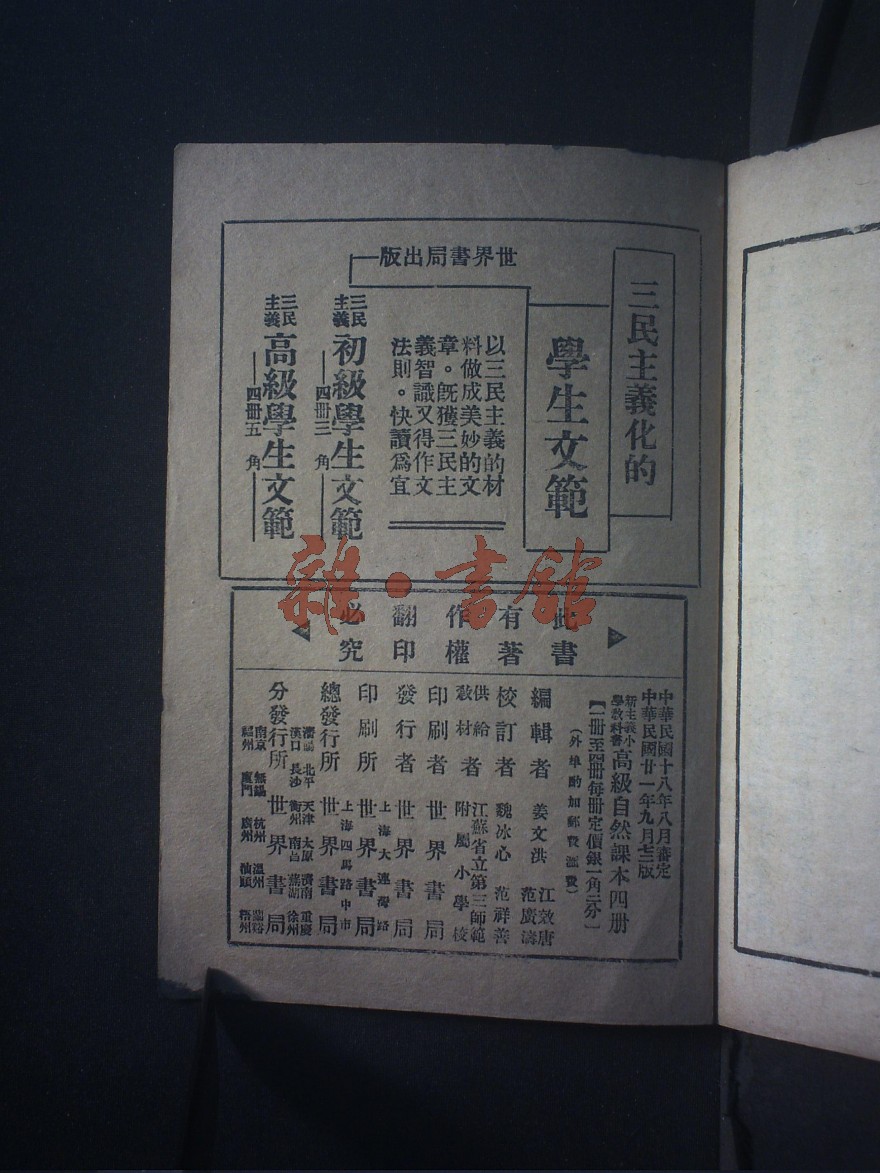 三民主義化的
學生文範
世界書局出版
以三民主義的材
料做成美妙的文
章。既獲三民主
義智識又得作文
法則。快讀爲宜
三民主義 初級學生文範
四冊三角
三民主義 高級學生文範
四冊五角
雜·書館
此書
有著
作權
翻印
必究
中華民國十八年八月審定
中華民國廿一年九月七三版
新主義小學教科書 高級自然課本四冊
【一冊至四冊每冊定價銀一角二分】
（外埠酌加郵費滙費）
編輯者 姜文洪 江效唐 范廣濤
校訂者 魏冰心 范祥善
供給教材者 江蘇省立第三師範附屬小學校
印刷者 世界書局
發行者 世界書局
印刷所 上海大連灣路 世界書局
總發行所 上海四馬路中市 世界書局
分發行所 世界書局
漢口 北平 長沙 天津 衡州 太原 南昌 濟南 蕪湖 重慶 徐州
南京 福州 無錫 廈門 杭州 廣州 溫州 汕頭 蘭谿 梧州